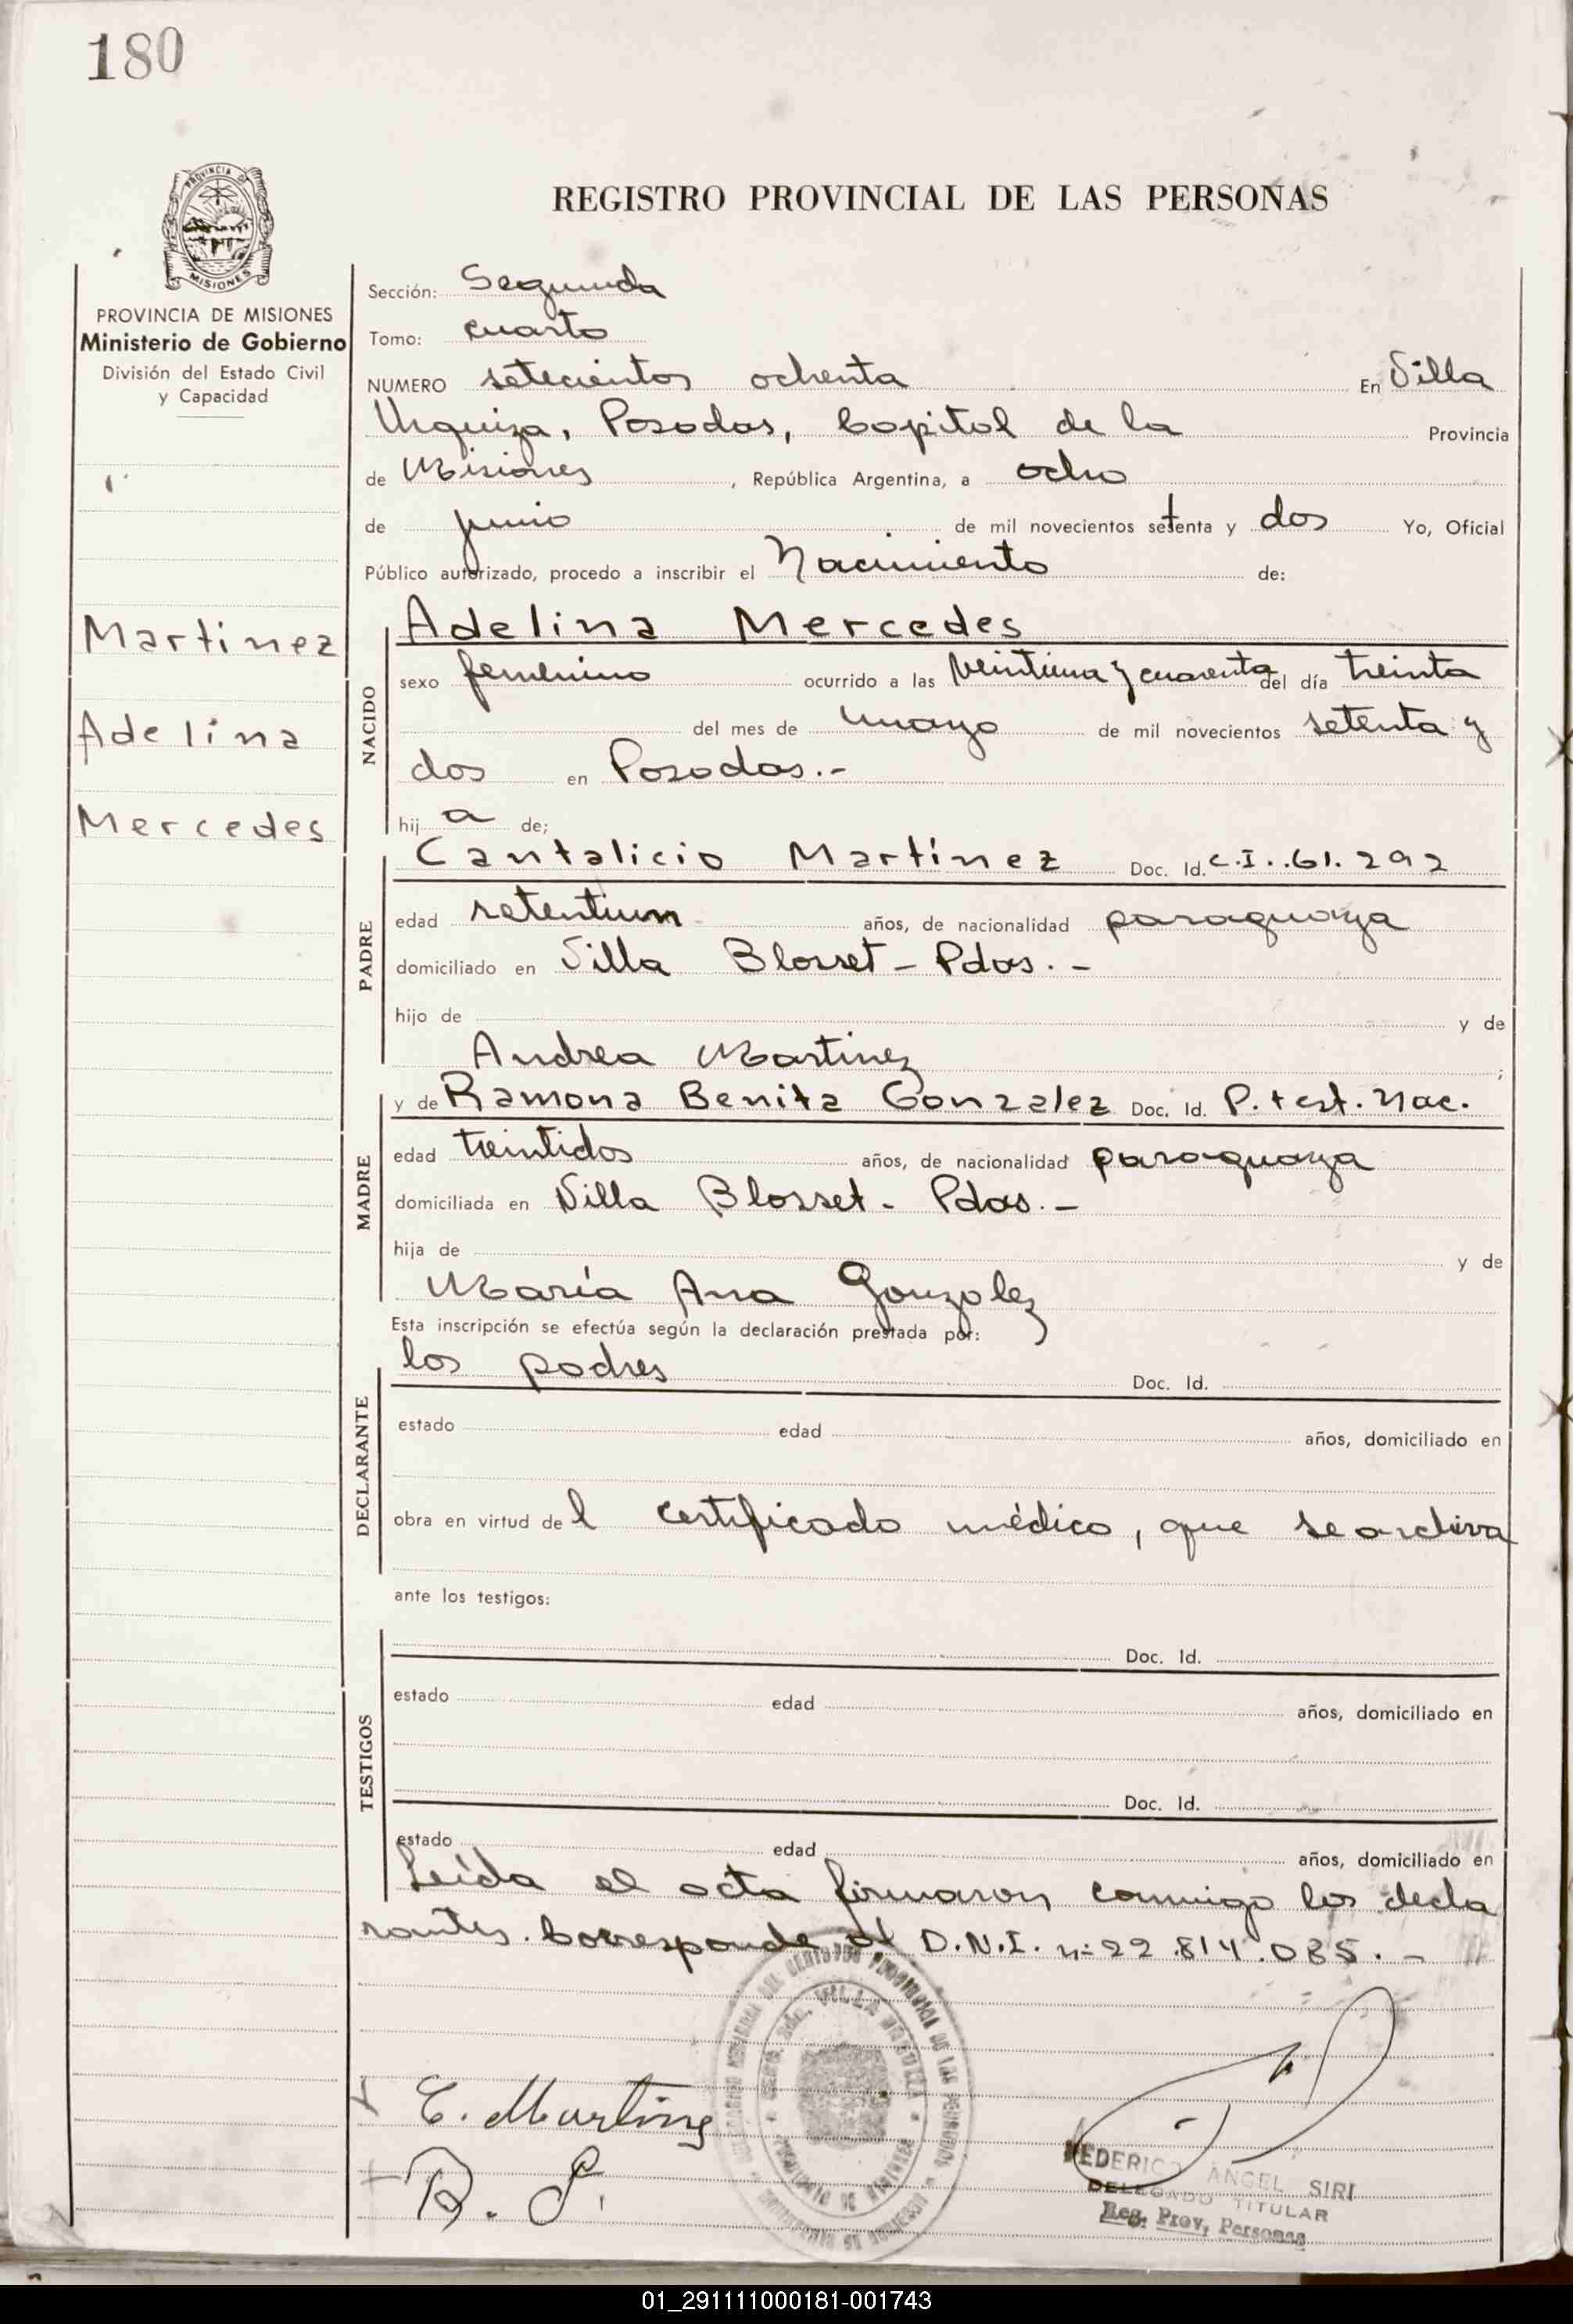 180
PROVINCIA DE
MISIONES
REGISTRO PROVINCIAL DE LAS PERSONAS
PROVINCIA DE MISIONES
Ministerio de Gobierno
División del Estado Civil
y Capacidad
Martinez
Adelina
Mercedes
Sección: Segunda
Tomo: cuarto
NUMERO setecientos ochenta En Villa
Urquiza, Posadas, Capital de la Provincia
de Misiones, República Argentina, a ocho
de junio de mil novecientos setenta y dos Yo, Oficial
Público autorizado, procedo a inscribir el Nacimiento de:
NACIDO
Adelina Mercedes
sexo femenino ocurrido a las veintiuna y cuarenta del día treinta
del mes de mayo de mil novecientos setenta y
dos en Posadas.-
hij a de;
PADRE
Cantalicio Martínez Doc. Id. C.I. 61.292
edad setentium años, de nacionalidad paraguaya
domiciliado en Villa Blosset - Pdas. -
hijo de y de
Andrea Martinez ;
MADRE
y de Ramona Benita Gonzalez Doc. Id. P. test. Nac.
edad treintidos años, de nacionalidad paraguaya
domiciliada en Villa Blosset - Pdas. -
hija de y de
María Ana Gonzalez
Esta inscripción se efectúa según la declaración prestada por:
DECLARANTE
los padres Doc. Id.
estado edad años, domiciliado en
obra en virtud del certificado médico, que se archiva
ante los testigos:
TESTIGOS
Doc. Id.
estado edad años, domiciliado en
Doc. Id.
estado edad años, domiciliado en
Leída el acta firmaron conmigo los decla
rantes. Corresponde al D.N.I. nº 22.814.085. -
E. Martinez
R. G.
FEDERICO ANGEL SIRI
DELEGADO TITULAR
Reg. Prov, Personas
01_291111000181-001743